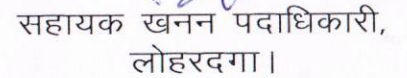 सहायक खनन पदाधिकारी,
लोहरदगा।